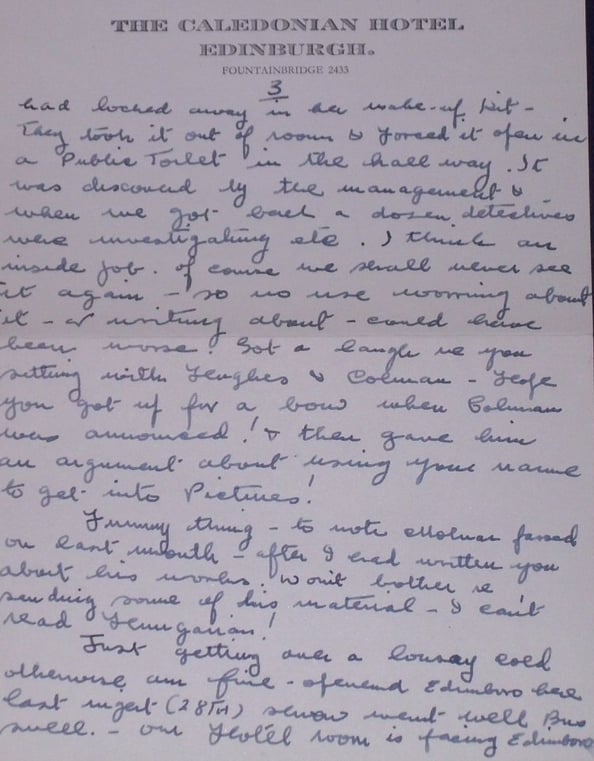 THE CALEDONIAN HOTEL
EDINBURGH.
FOUNTAINBRIDGE 2433
3
had locked away in her make-up kit -
They took it out of room & forced it open in
a Public Toilet in the hall way. It
was discoverd by the management &
when we got back a dozen detectives
were investigating etc. I think an
inside job. of course we shall never see
it again - so no use worring about
it - or writing about - could have
been worse! Got a laugh re you
sitting with Hughes & Colman - Hope
you got up for a bow when Colman
was announced! & then gave him
an argument about using your name
to get into Pictures!
Funny thing - to note Molnar passed
on last month - after I had written you
about his works. Won't bother re
sending some of his material - I can't
read Hungarian!
Just getting over a lousay cold
otherwise am fine - openend Edinboro here
last nigt (28TH) show went well Bus
swell. - our Hotel room is facing Edinboro